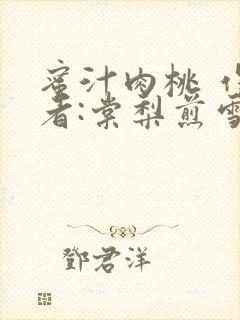 蜜汁肉桃
者:棠梨煎雪
鄧君洋